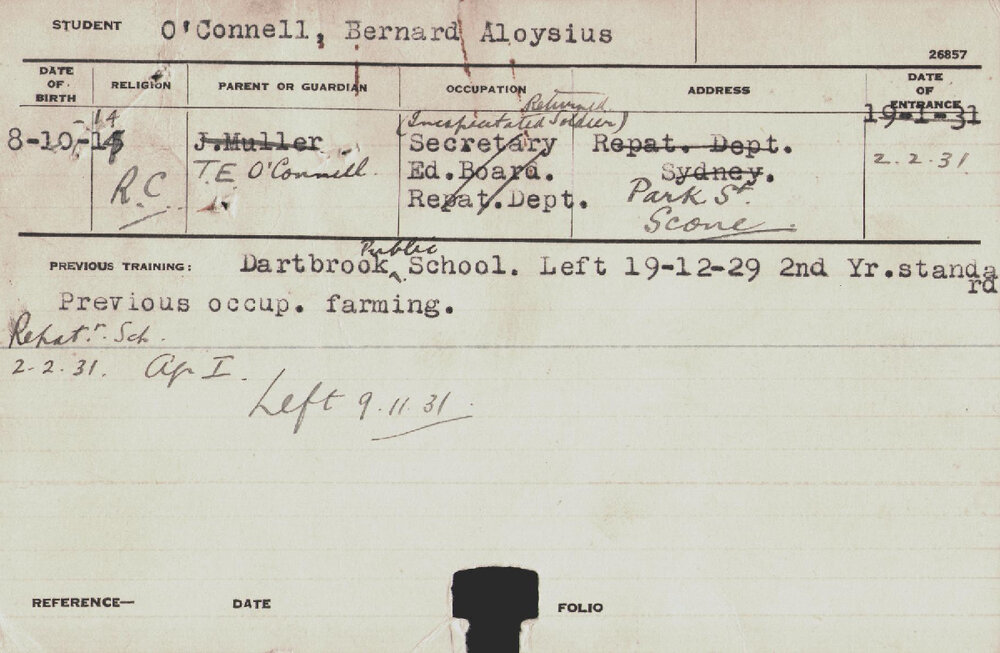 STUDENT O'Connell, Bernard Aloysius
26857
DATE OF BIRTH
RELIGION
PARENT OR GUARDIAN
OCCUPATION
ADDRESS
DATE OF ENTRANCE
Returned
(Incapacitated Soldier)
19-1-31
14
8-10-15
J.Muller
Secretary
Repat. Dept.
T.E O'Connell.
Ed.Board.
Sydney.
2.2.31
R.C
Repat.Dept.
Park St.
Scone
Public
PREVIOUS TRAINING: Dartbrook School. Left 19-12-29 2nd Yr.standa
rd
Previous occup. farming.
Repatn. Sch.
2-2-31. Ap I.
Left 9.11.31
REFERENCE— DATE FOLIO